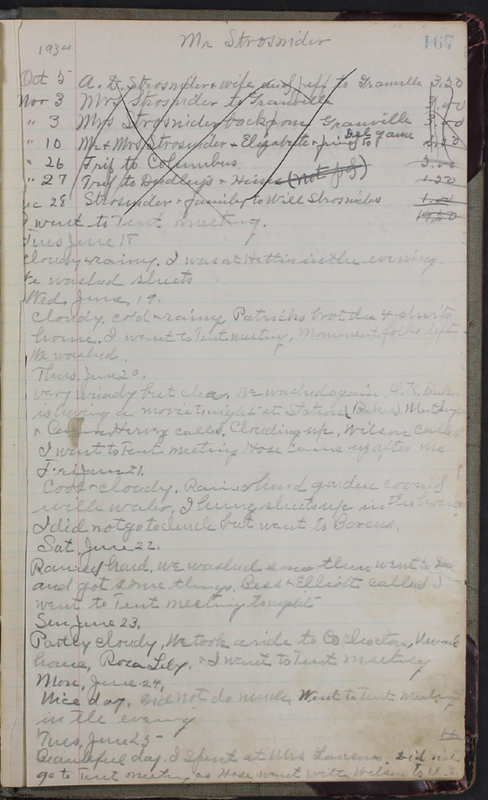 167
Mr Strosnider
1934
Oct 5 A. D. Strosnider & wife and Jeff to Granville 3.20
Nov 3 Mrs Strosnider to Granville
" 3 Mrs Strosnider back from Granville
" 10 Mr & Mrs Strosnider & Elizabeth & Jim to game
" 26 Trip to Columbus
" 27 Trip to Dudleys & Hines
28 Strosnider & family to Will Strosniders
I went to Tent meeting.
Tues June 18
Cloudy & rainy. I was at Hetties in the evening.
We washed sheets
Wed. June, 19.
Cloudy, cold & rainy Patricks brot the 4 shirts
home. I went to Tent meeting, Monument folks left
We washed.
Thurs, June 20.
Very windy but clear. We washed again.
is having a movie tonight at Station
& Harvey called. Clouding up, Wilson called
I went to Tent meeting Hose came up after me.
Fri June 21.
Cool & cloudy. Rained hard garden covered
with water, I hung sheets up in the house
I did not go to church but went to
Sat June 22.
Rained hard, we washed some then went to
and got some things. Bess & Elliott called I
went to Tent meeting tonight
Sun June 23.
Partly cloudy, We took a ride to Coshocton, Newark
home, Roza Lily, & I went to Tent meeting
Mon, June 24,
Nice day. Did not do much, Went to Tent meeting
in the evening
Tues, June 25
Beautiful day. I spent at Mrs Lawson. Did not
go to Tent meeting as Hose went with Wilson to